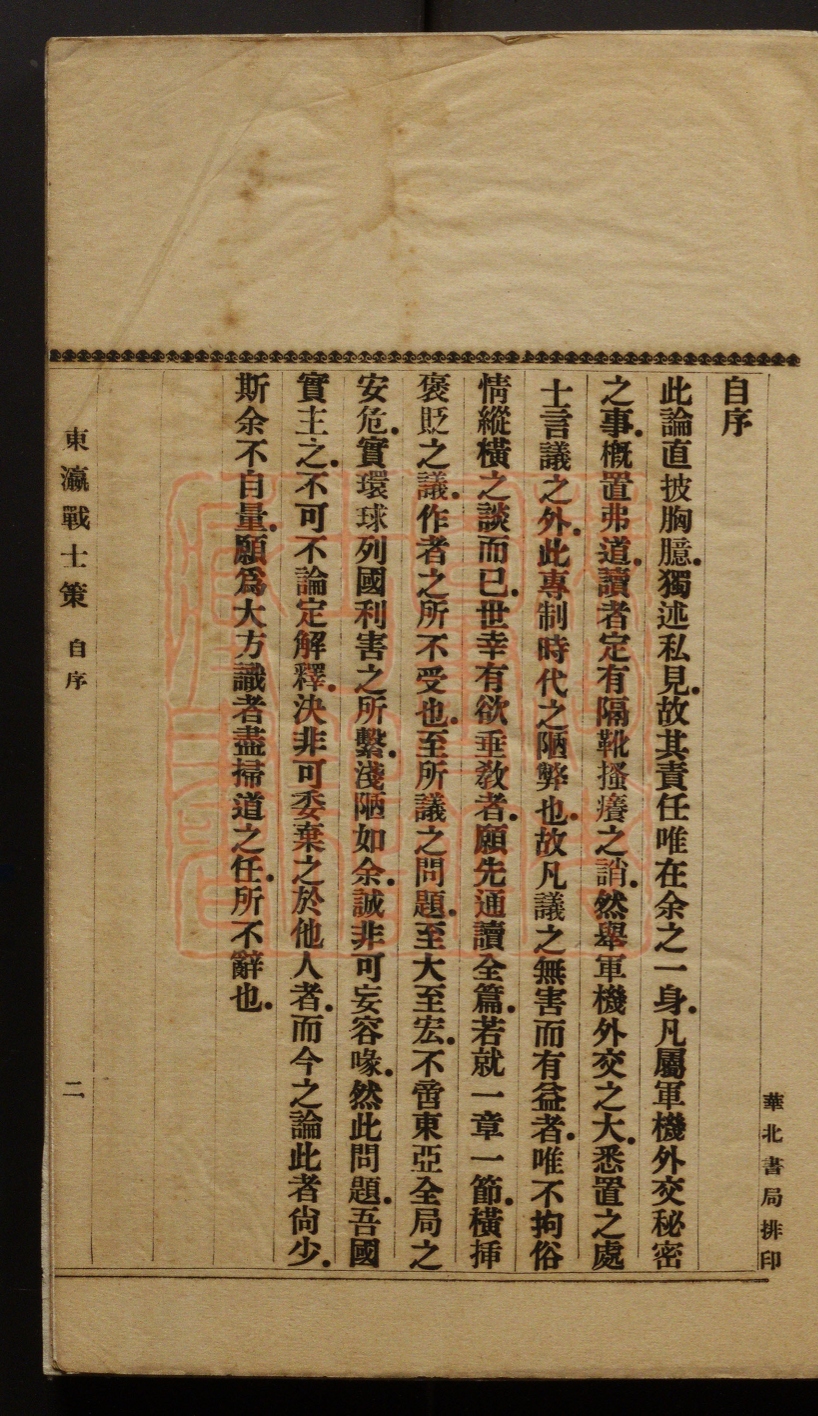 華北書局排印
自序
此論直披胸臆.獨述私見.故其責任唯在余之一身.凡屬軍機外交秘密
之事.概置弗道.讀者定有隔靴搔癢之誚.然舉軍機外交之大.悉置之處
士言議之外.此專制時代之陋弊也.故凡議之無害而有益者.唯不拘俗
情縱橫之談而已.世幸有欲垂教者.願先通讀全篇.若就一章一節.橫揷
褒貶之議.作者之所不受也.至所議之問題.至大至宏.不啻東亞全局之
安危.實環球列國利害之所繫.淺陋如余.誠非可妄容喙.然此問題.吾國
實主之.不可不論定解釋.決非可委棄之於他人者.而今之論此者尙少.
斯余不自量.願爲大方識者盡掃道之任.所不辭也.
東瀛戰士策 自序 二